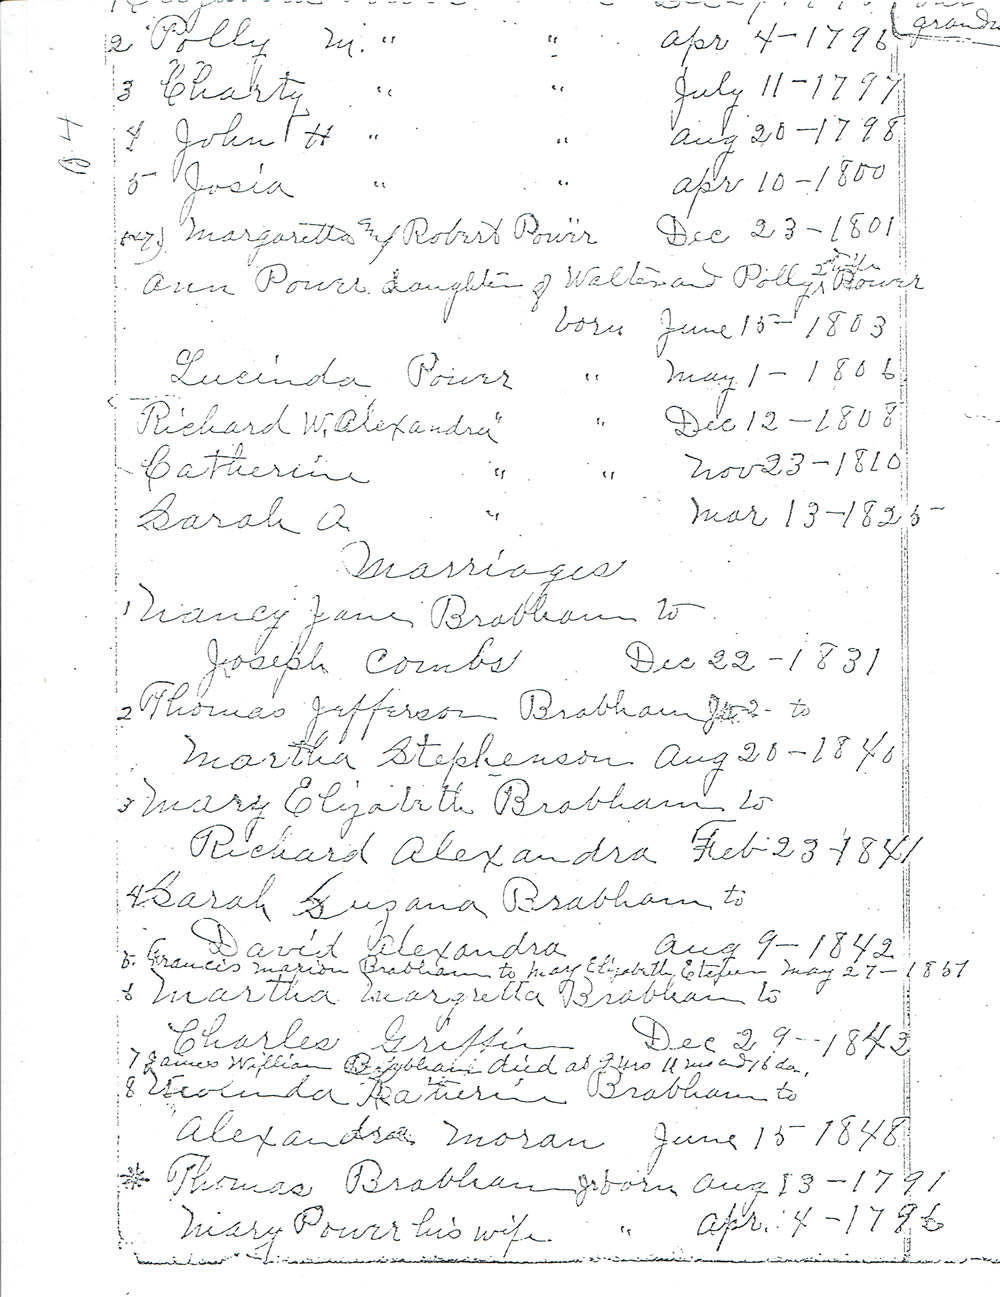 2 Polly M. " " Apr 4-1796
grandm
3 Charty " " July 11-1797
4 John H " " Aug 20-1798
5 Josia " " Apr 10-1800
B 4
6 & 7) Margaretta & Robert Power Dec 23-1801
Ann Power Daughter of Walter and Polly Power
born June 15-1803
Lucinda Power " May 1-1806
Richard W. Alexandra " " Dec 12-1808
Catherine " " Nov 23-1810
Sarah A " Mar 13-1825
Marriages
1 Nancy Jane Brabham to
Joseph Combs Dec 22-1831
2 Thomas Jefferson Brabham to
Martha Stephenson Aug 20-1840
3 Mary Elizabeth Brabham to
Richard Alexandra Feb 23-1841
4 Sarah Suzana Brabham to
David Alexandra Aug 9-1842
5. Francis Marion Brabham to Mary Elizabeth May 27-1857
6 Martha Margretta Brabham to
Charles Griffin Dec 29-1843
7 James William Brabham died at
8 Katherin Brabham to
Alexandra Moran June 15 1848
* Thomas Brabham Jr born Aug 13-1791
Mary Power his wife " Apr. 4-1796